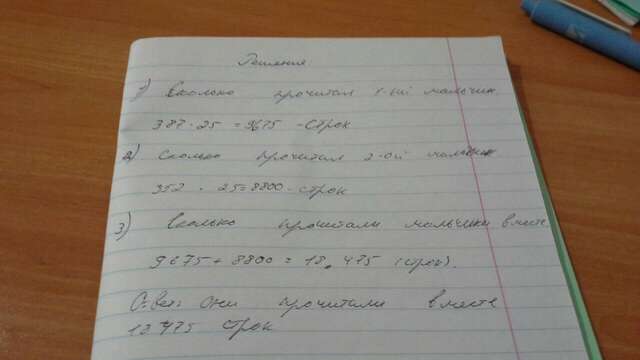 Решение
1) Сколько прочитал 1-ый мальчик
387 · 25 = 9675 - строк
2) Сколько прочитал 2-ой мальчик
352 · 25 = 8800 - строк
3) Сколько прочитали мальчики вместе.
9675 + 8800 = 18.475 (строк).
Ответ: они прочитали вместе
18.475 строк